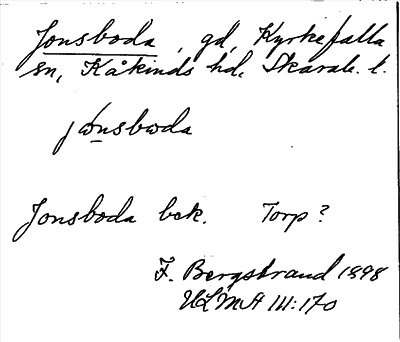 Jonsboda, gd, Kyrkefalla
sn, Kåkinds hd, Skarab. l.
Jonsboda bek. Torp?
F. Bergstrand 1898
ULMA 111:170